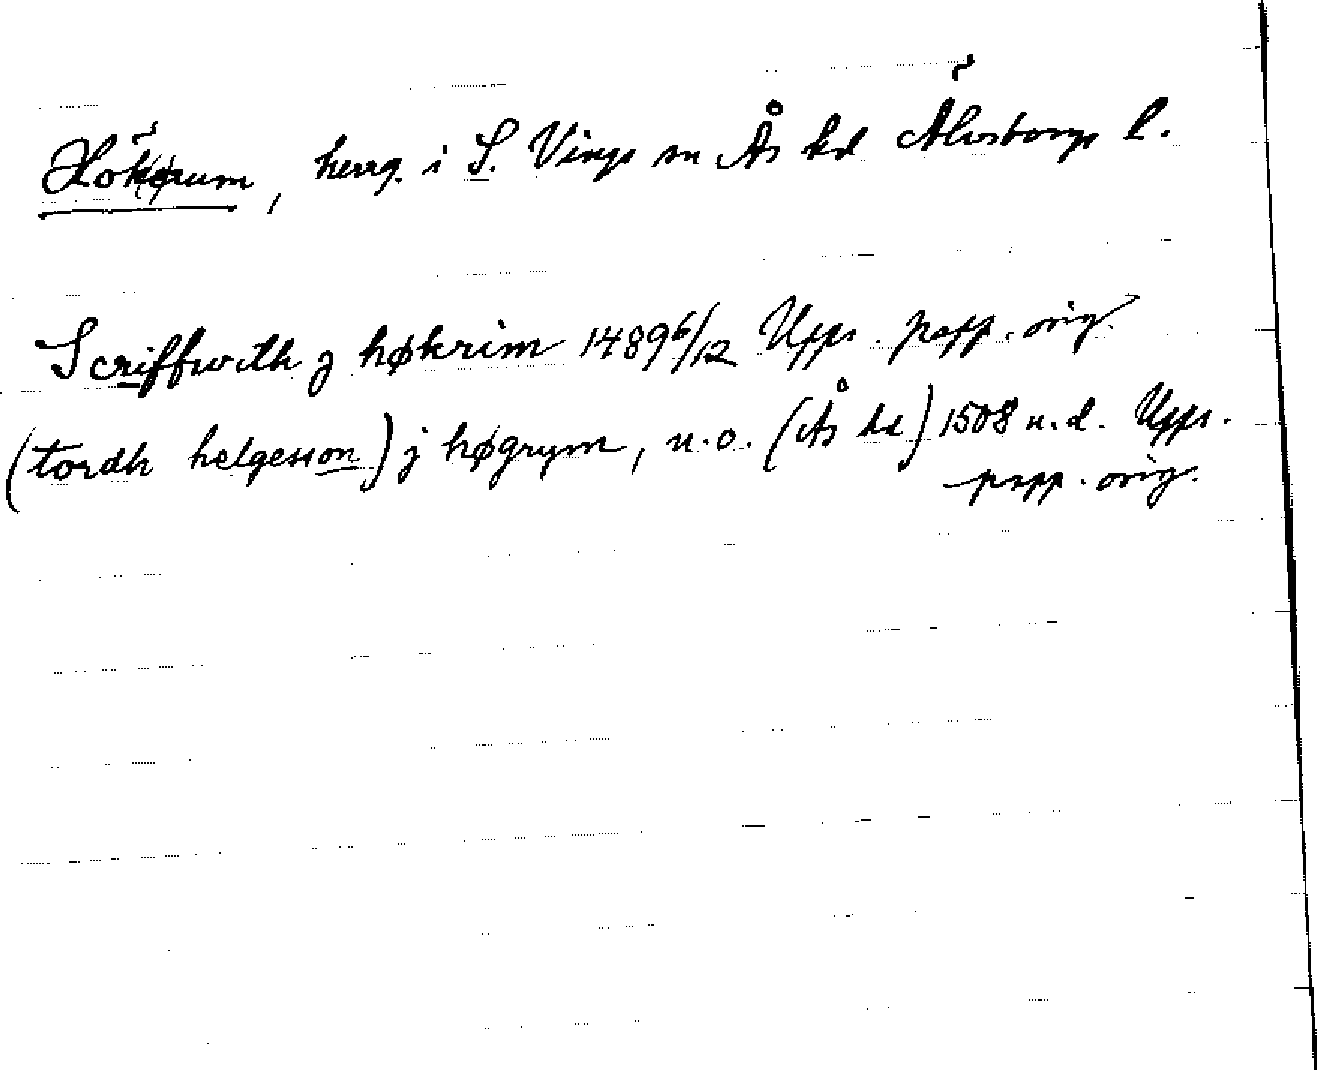 Hökerum, herrg. i S. Vings sn Ås hd Älvsborgs l.
Scriffwith j høkrim 1489 6/12 Upps. papp. orig.
(tordh helgesson) j høgrym, u.o. (Ås hd) 1508 u.d. Upps.
papp. orig.